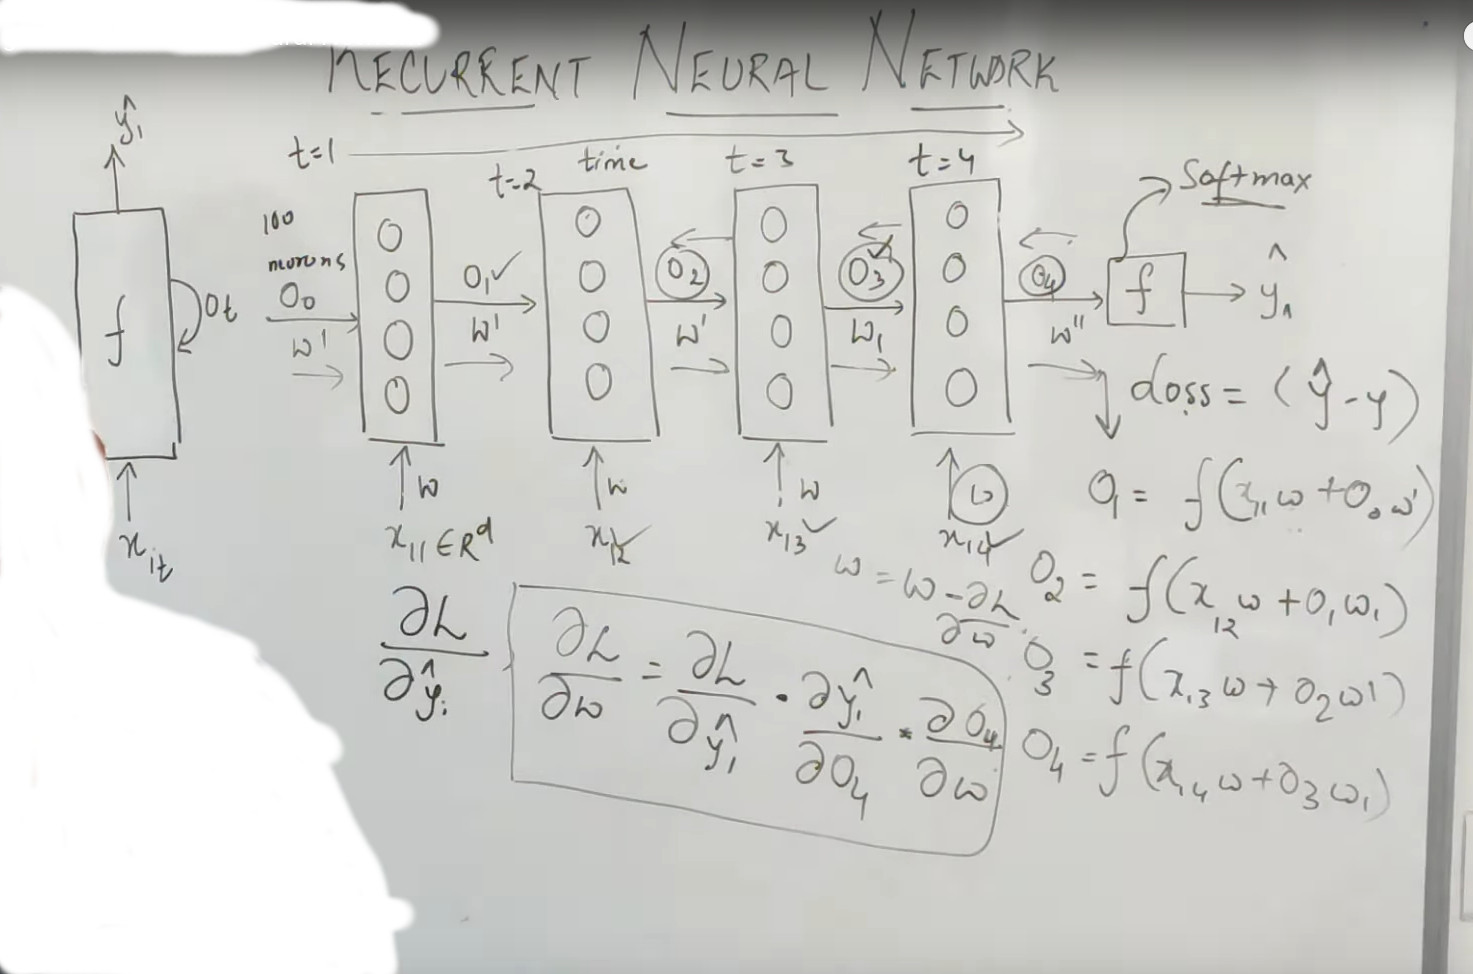 RECURRENT NEURAL NETWORK
ŷ₁
f
Ot
x₁t
t=1
t=2
time
t=3
t=4
100
nurons
O₀
w'
O₁✓
w'
O₂
w'
O₃✓
w₁
O₄
w"
f
Softmax
ŷ₁
w
w
w
w
x₁₁ ∈ Rᵈ
x₁₂✓
x₁₃✓
x₁₄✓
Loss = (ŷ-y)
O₁ = f(x₁₁w + O₀w')
w = w - ∂L/∂w
O₂ = f(x₁₂w + O₁w₁)
O₃ = f(x₁₃w + O₂w')
O₄ = f(x₁₄w + O₃w₁)
∂L/∂ŷ₁
∂L/∂w = ∂L/∂ŷ₁ . ∂ŷ₁/∂O₄ * ∂O₄/∂w